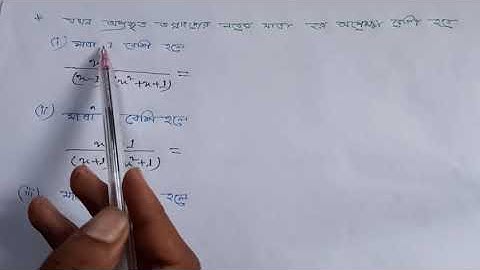 * যখন অপ্রকৃত ভগ্নাংশের লবের মাত্রা হর অপেক্ষা বেশি হবে
(i) মাত্রা 1 বেশি হলে
(x-1 x²+x+1) =
(ii) মাত্রা বেশি হলে
(x+1 x²+1) =
(iii) হলে